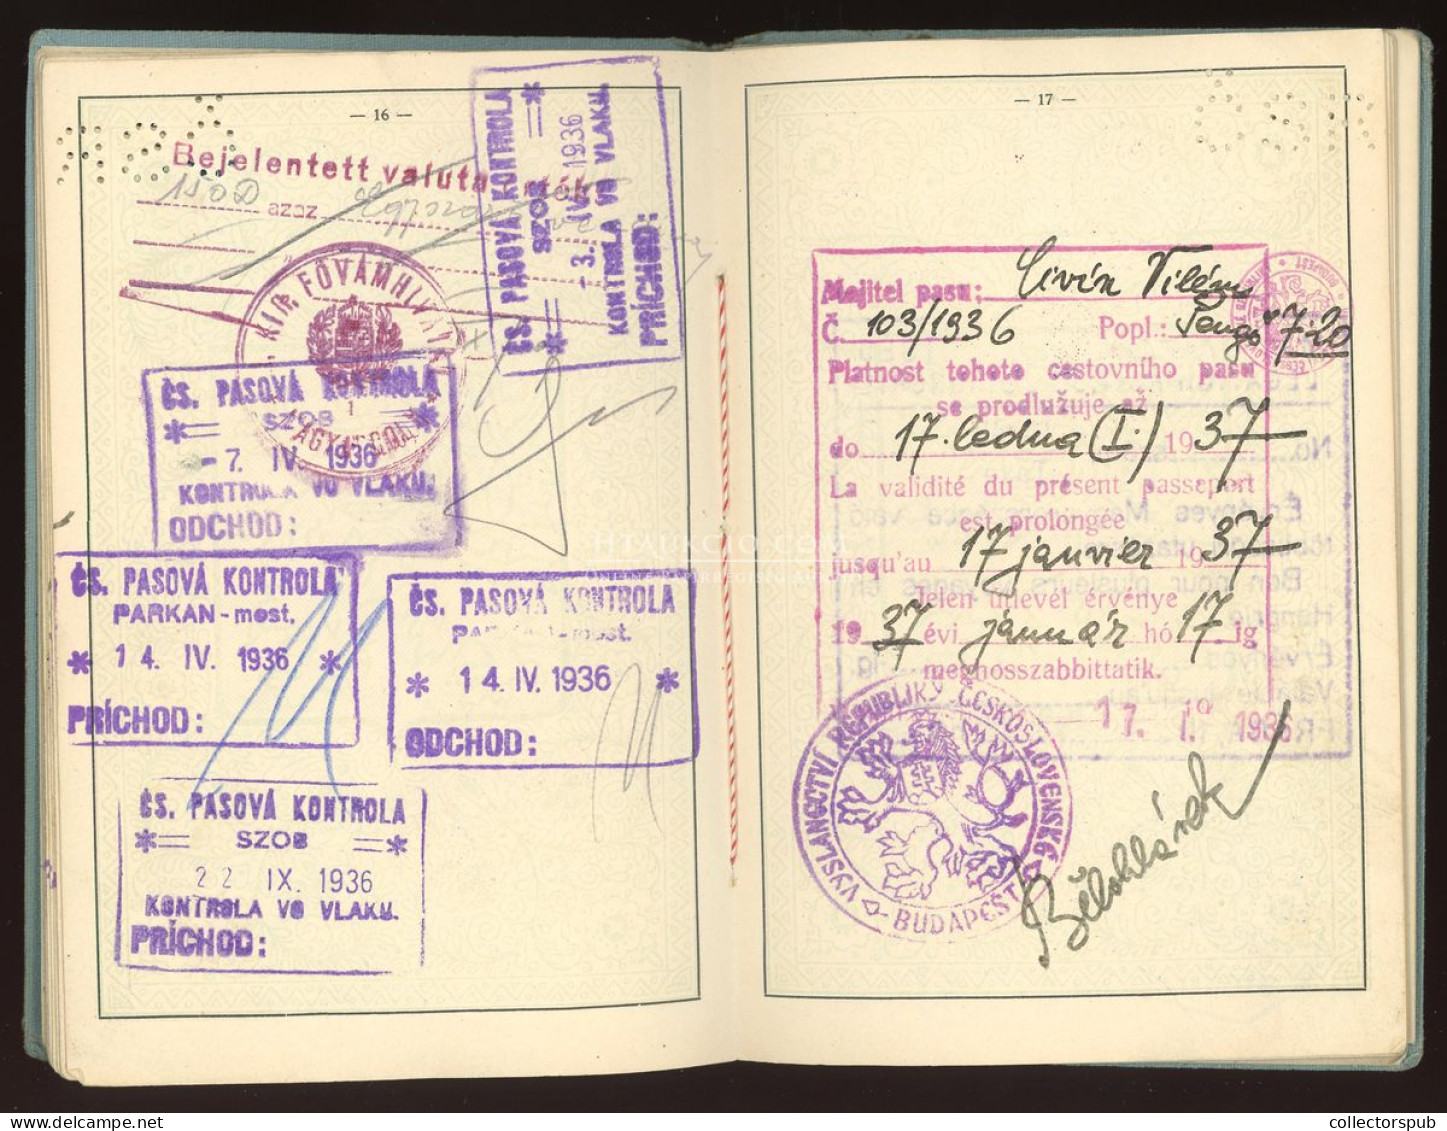 — 16 —
Bejelentett valuta
azaz
ČS. PASOVÁ KONTROLA
SZOB
- 3. IV. 1936
KONTROLA VO VLAKU.
PRÍCHOD:
KIR. FŐVÁMHIVATAL
1
ČS. PASOVÁ KONTROLA
SZOB
- 7. IV 1936
KONTROLA VO VLAKU.
ODCHOD:
ČS. PASOVÁ KONTROLA
PARKAN - most.
14. IV. 1936
PRÍCHOD:
ČS. PASOVÁ KONTROLA
PARKAN - most.
14. IV. 1936
ODCHOD:
ČS. PASOVÁ KONTROLA
SZOB
22 IX. 1936
KONTROLA VO VLAKU.
PRÍCHOD:
— 17 —
Majitel pasu: Vilém
Č. 103/1936 Popl.: Pengő 7.20
Platnost tohoto cestovního pasu
se prodlužuje až
do 17. ledna (I.) 1937
La validité du présent passeport
est prolongée
jusqu'au 17 janvier 1937
Jelen útlevél érvénye
1937 évi január hó 17 ig
meghosszabbittatik.
17. I. 1936
VYSLANECTVÍ REPUBLIKY ČESKOSLOVENSKÉ
BUDAPEST
Bělohlávek
HTAUKCIO.COM
collectorspub.com